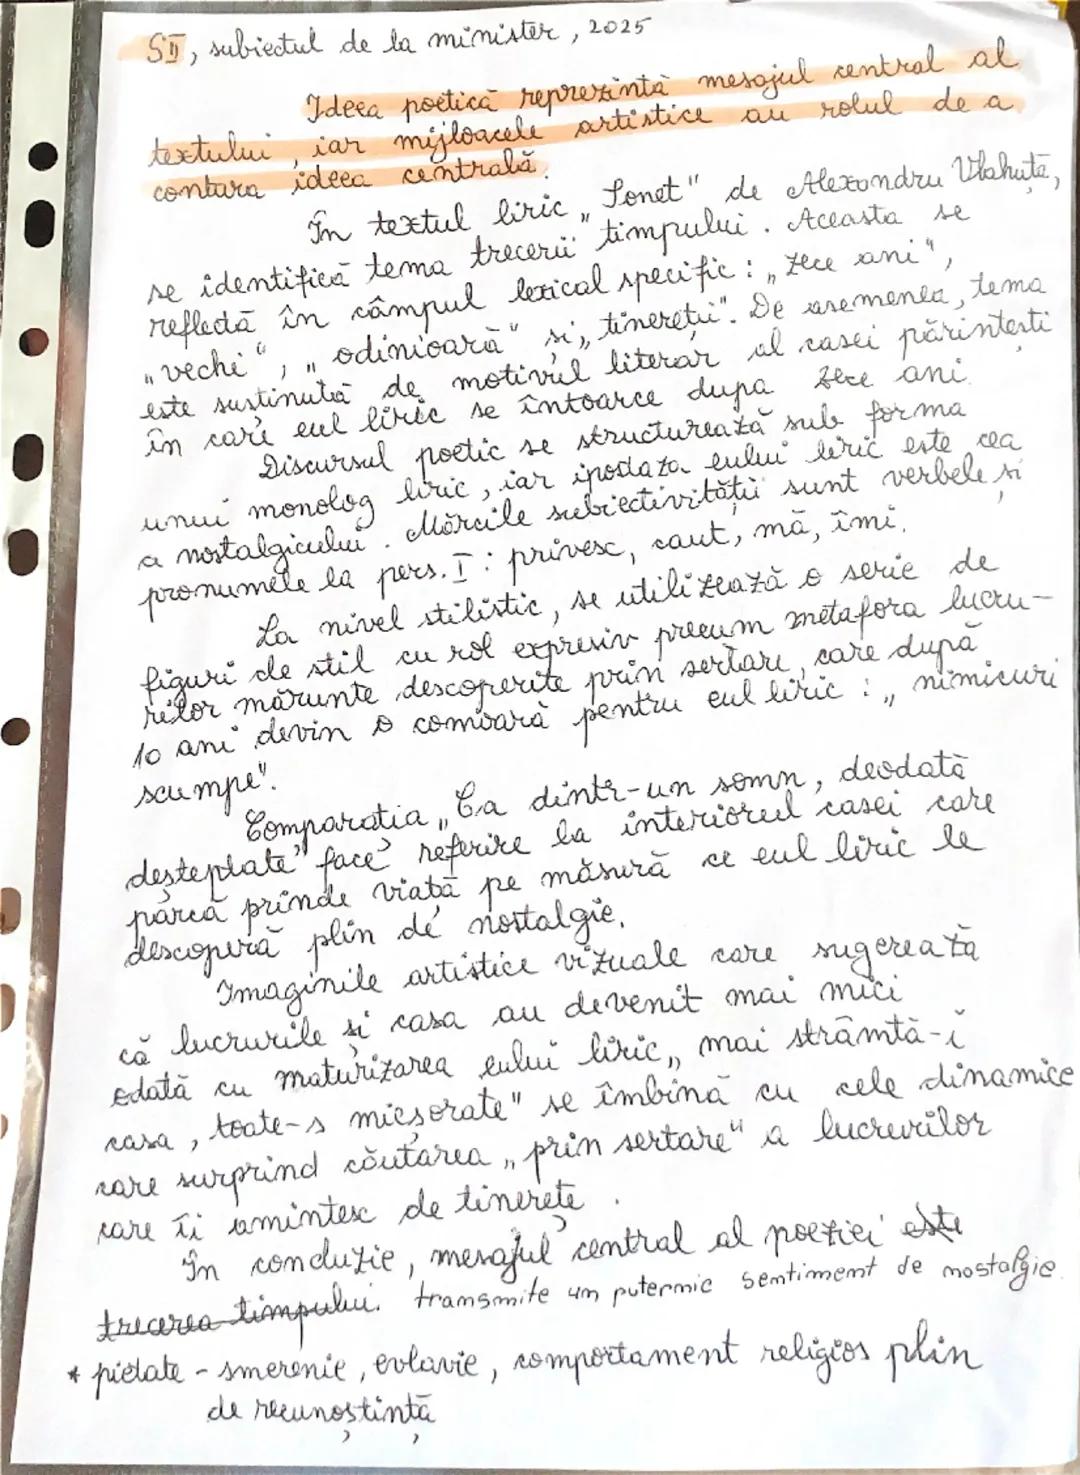 SII, subiectul de la minister, 2025
Ideea poetică reprezintă mesajul central al
textului, iar mijloacele artistice au rolul de a
contura ideea centrală.
În textul liric „Sonet" de Alexandru Vlahuță,
se identifică tema trecerii timpului. Aceasta se
reflectă în câmpul lexical specific: „zece ani",
„vechi", „odinioară" și „tinereții". De asemenea, tema
este susținută de motivul literar al casei părintești
în care eul liric se întoarce dupa zece ani.
Discursul poetic se structurează sub forma
unui monolog liric, iar ipostaza eului liric este cea
a nostalgicului. Mărcile subiectivității sunt verbele și
pronumele la pers. I: privesc, caut, mă, îmi.
La nivel stilistic, se utilizează o serie de
figuri de stil cu rol expresiv precum metafora lucru-
rilor mărunte descoperite prin sertare, care după
10 ani devin o comoară pentru eul liric: „nimicuri
scumpe".
Comparația „Ca dintr-un somn, deodată
deșteptate" face referire la interiorul casei care
parcă prinde viață pe măsură ce eul liric le
descoperă plin de nostalgie.
Imaginile artistice vizuale care sugerează
că lucrurile și casa au devenit mai mici
odată cu maturizarea eului liric „mai strâmtă-i
casa, toate-s micșorate" se îmbină cu cele dinamice
care surprind căutarea „prin sertare" a lucrurilor
care îi amintesc de tinerețe.
În concluzie, mesajul central al poeziei este
trecerea timpului. transmite un puternic sentiment de nostalgie.
* pietate - smerenie, evlavie, comportament religios plin
de recunoștință